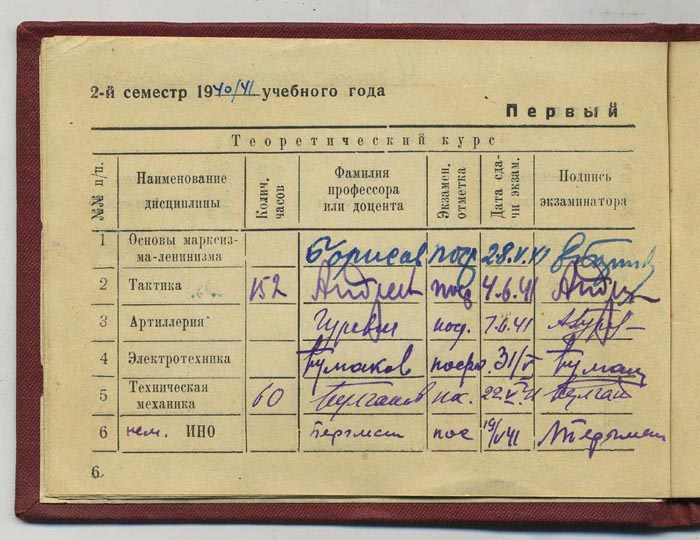 2-й семестр 1940/41 учебного года
Первый
Теоретический курс
№№ п/п. Наименование дисциплины Колич. часов Фамилия профессора или доцента Экзамен. отметка Дата сдачи экзам. Подпись экзаменатора
1 Основы марксиз-
ма-ленинизма Борисов пос 28.V.41
2 Тактика 152 Андреев пос 4.6.41 Андр
3 Артиллерия Гуревич пос. 7.6.41
4 Электротехника Бумаков поср. 31/V Бумак
5 Техническая
механика 60 Булганов пос. 22.VI.41 Булган
6 нем. ИНО Герман пос 19/VI 41
6.